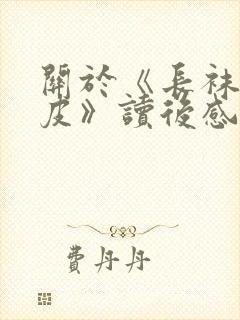 關於《長袜
皮》讀後感
費丹丹